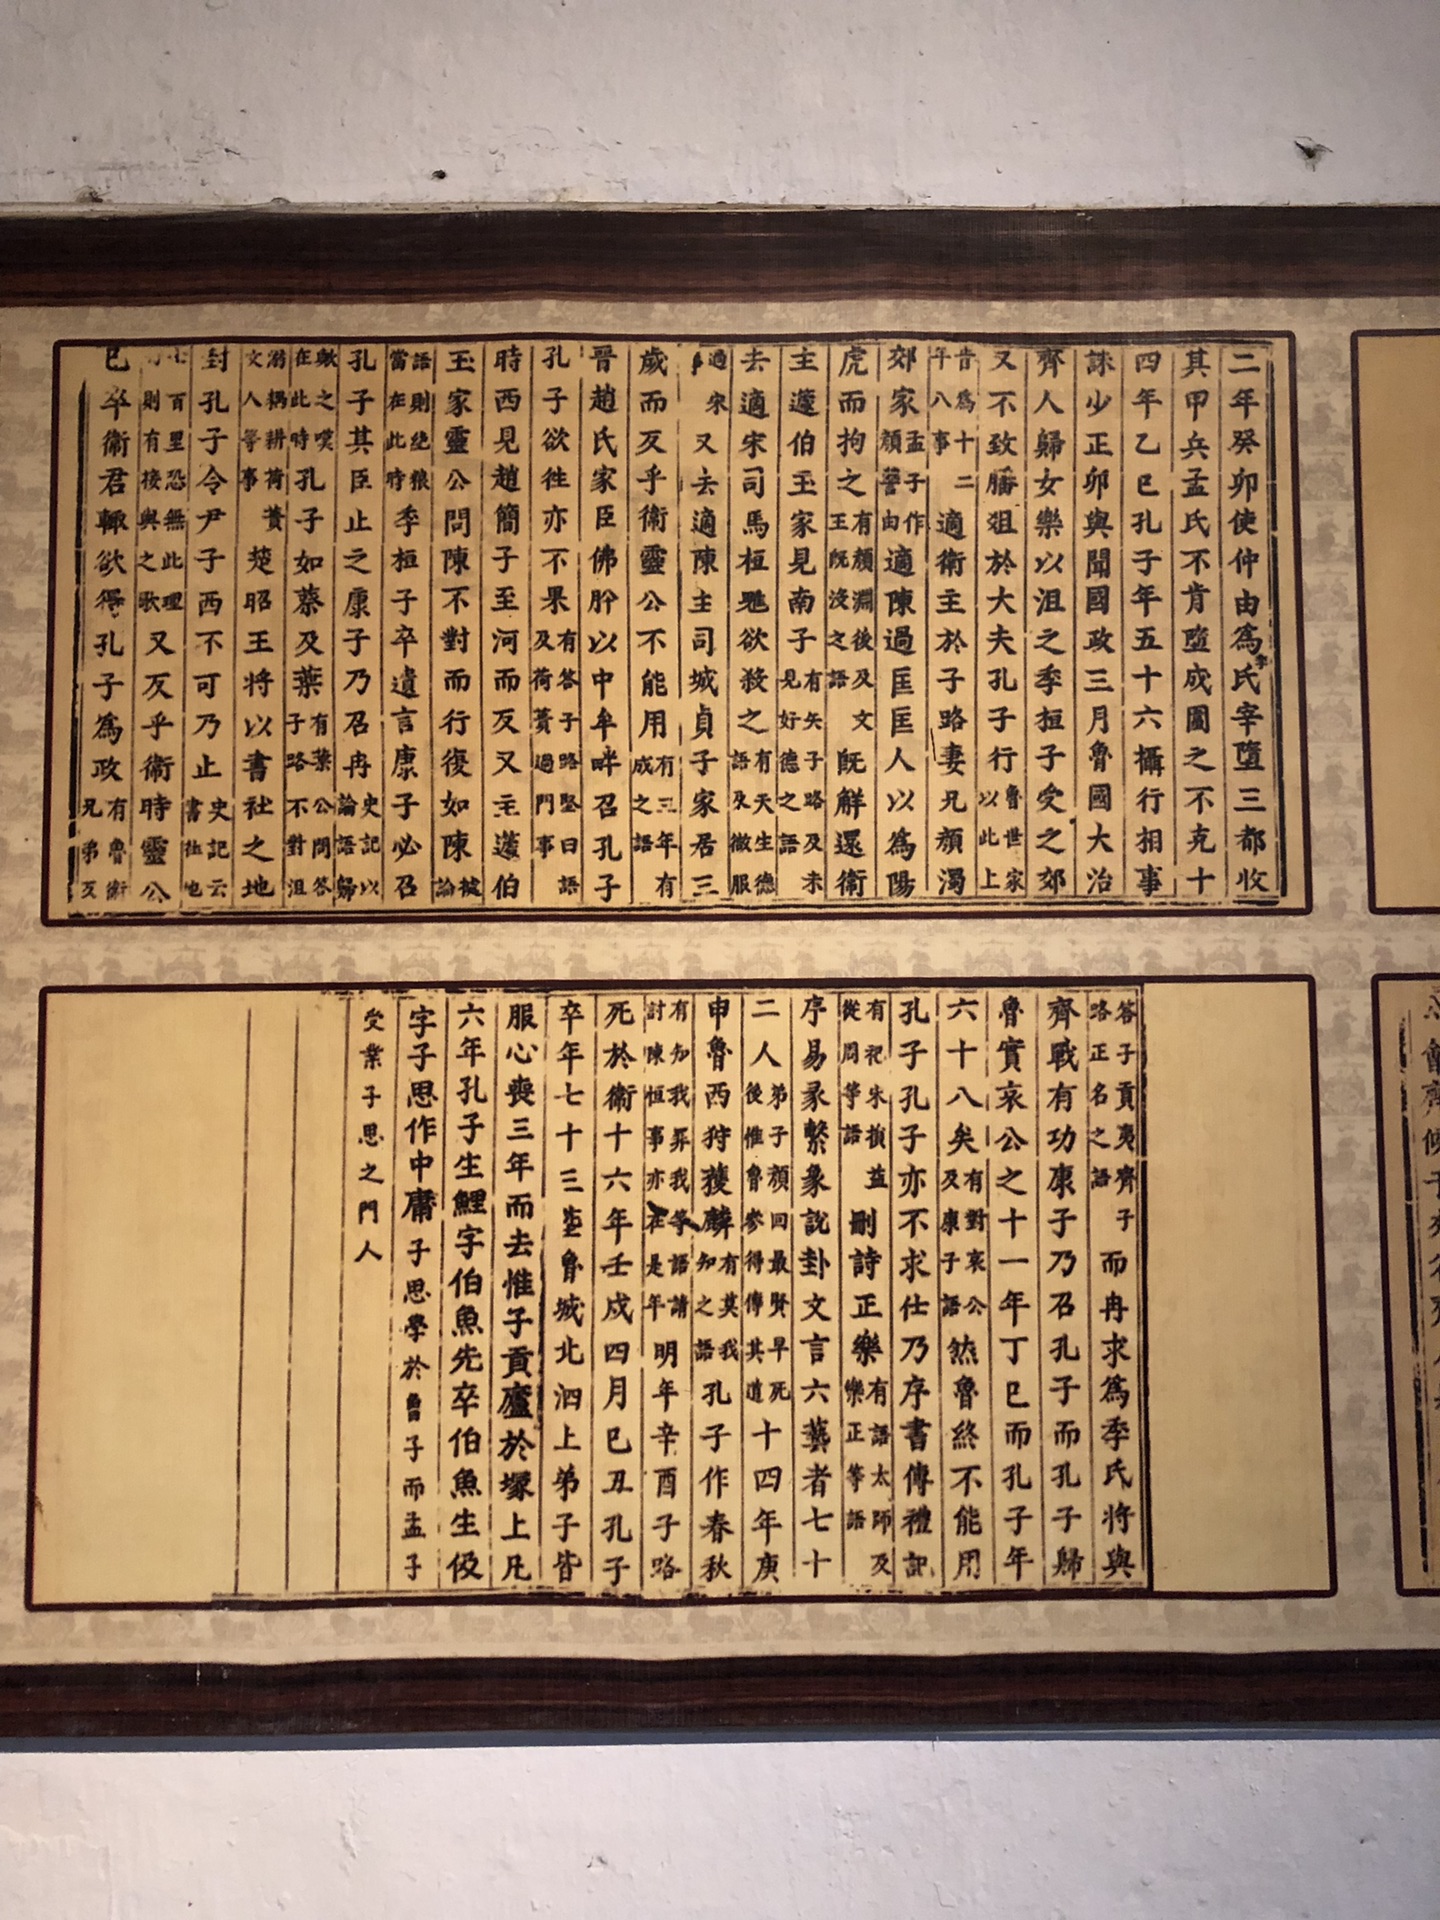 二年癸卯使仲由為季氏宰墮三都收
其甲兵孟氏不肯墮成圍之不克十
四年乙巳孔子年五十六攝行相事
誅少正卯與聞國政三月魯國大治
齊人歸女樂以沮之季桓子受之郊
又不致膰俎於大夫孔子行魯世家以此上
皆為十二年八事適衛主於子路妻兄顏濁
郊家孟子作顏讐由適陳過匡匡人以為陽
虎而拘之有顏淵後及文王既沒之語既解還衛
主蘧伯玉家見南子有矢子路及未見好德之語
去適宋司馬桓魋欲殺之有天生德語及微服
過宋又去適陳主司城貞子家居三
歲而反乎衛靈公不能用有三年有成之語
晉趙氏家臣佛肸以中牟畔召孔子
孔子欲往亦不果有答子路堅曰語及荷蕢過門事
時西見趙簡子至河而反又主蘧伯
玉家靈公問陳不對而行復如陳據論
語則絕粮當在此時季桓子卒遺言康子必召
孔子其臣止之康子乃召冉史記以論語歸
歟之嘆在此時孔子如蔡及葉有葉公問答子路不對沮
溺耦耕荷蕢丈人等事楚昭王將以書社之地
封孔子令尹子西不可乃止史記云書社地
七百里恐無此理時則有接輿之歌又反乎衛時靈公
已卒衛君輒欲得孔子為政有魯衛兄弟及
答子貢夷齊子路正名之語而冉求為季氏將與
齊戰有功康子乃召孔子而孔子歸
魯實哀公之十一年丁巳而孔子年
六十八矣有對哀公及康子語然魯終不能用
孔子孔子亦不求仕乃序書傳禮記
有杞宋損益從周等語刪詩正樂有語太師及樂正等語
序易彖繫象說卦文言六藝者七十
二人弟子顏回最賢早死後惟魯參得傳其道十四年庚
申魯西狩獲麟有莫我知之語孔子作春秋
有知我罪我等語請討陳恒事亦在是年明年辛酉子路
死於衛十六年壬戌四月己丑孔子
卒年七十三塟魯城北泗上弟子皆
服心喪三年而去惟子貢廬於塚上凡
六年孔子生鯉字伯魚先卒伯魚生伋
字子思作中庸子思學於曾子而孟子
受業子思之門人